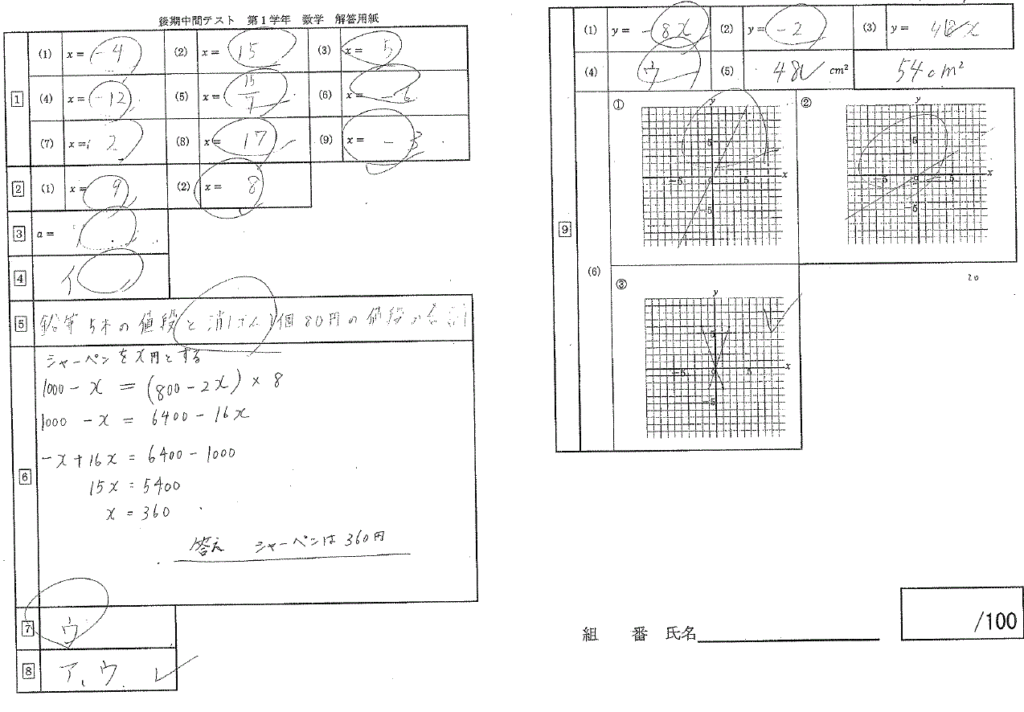 後期中間テスト 第1学年 数学 解答用紙
1
(1) x= -4 (2) x= 15 (3) x= 5
(4) x= -12 (5) x= 15/7 (6) x=
(7) x= 2 (8) x= 17 (9) x= -3
2 (1) x= 9 (2) x= 8
3 a=
4 イ
5 鉛筆5本の値段と消しゴム1個80円の値段の合計
6
シャーペンをx円とする
1000-x = (800-2x)×8
1000-x = 6400-16x
-x+16x = 6400-1000
15x = 5400
x = 360
答え シャーペンは360円
7 ウ
8 ア、ウ
9
(1) y= -8x (2) y= -2 (3) y=
(4) (5) 48 cm² 54cm²
(6)
① y 5 -5 0 5 x -5
② y 5 -5 0 5 x -5
20
③ y 5 -5 0 5 x -5
組 番 氏名
/100